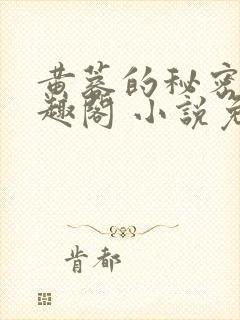 黄蓉的秘密
趣阁 小説免
肯都